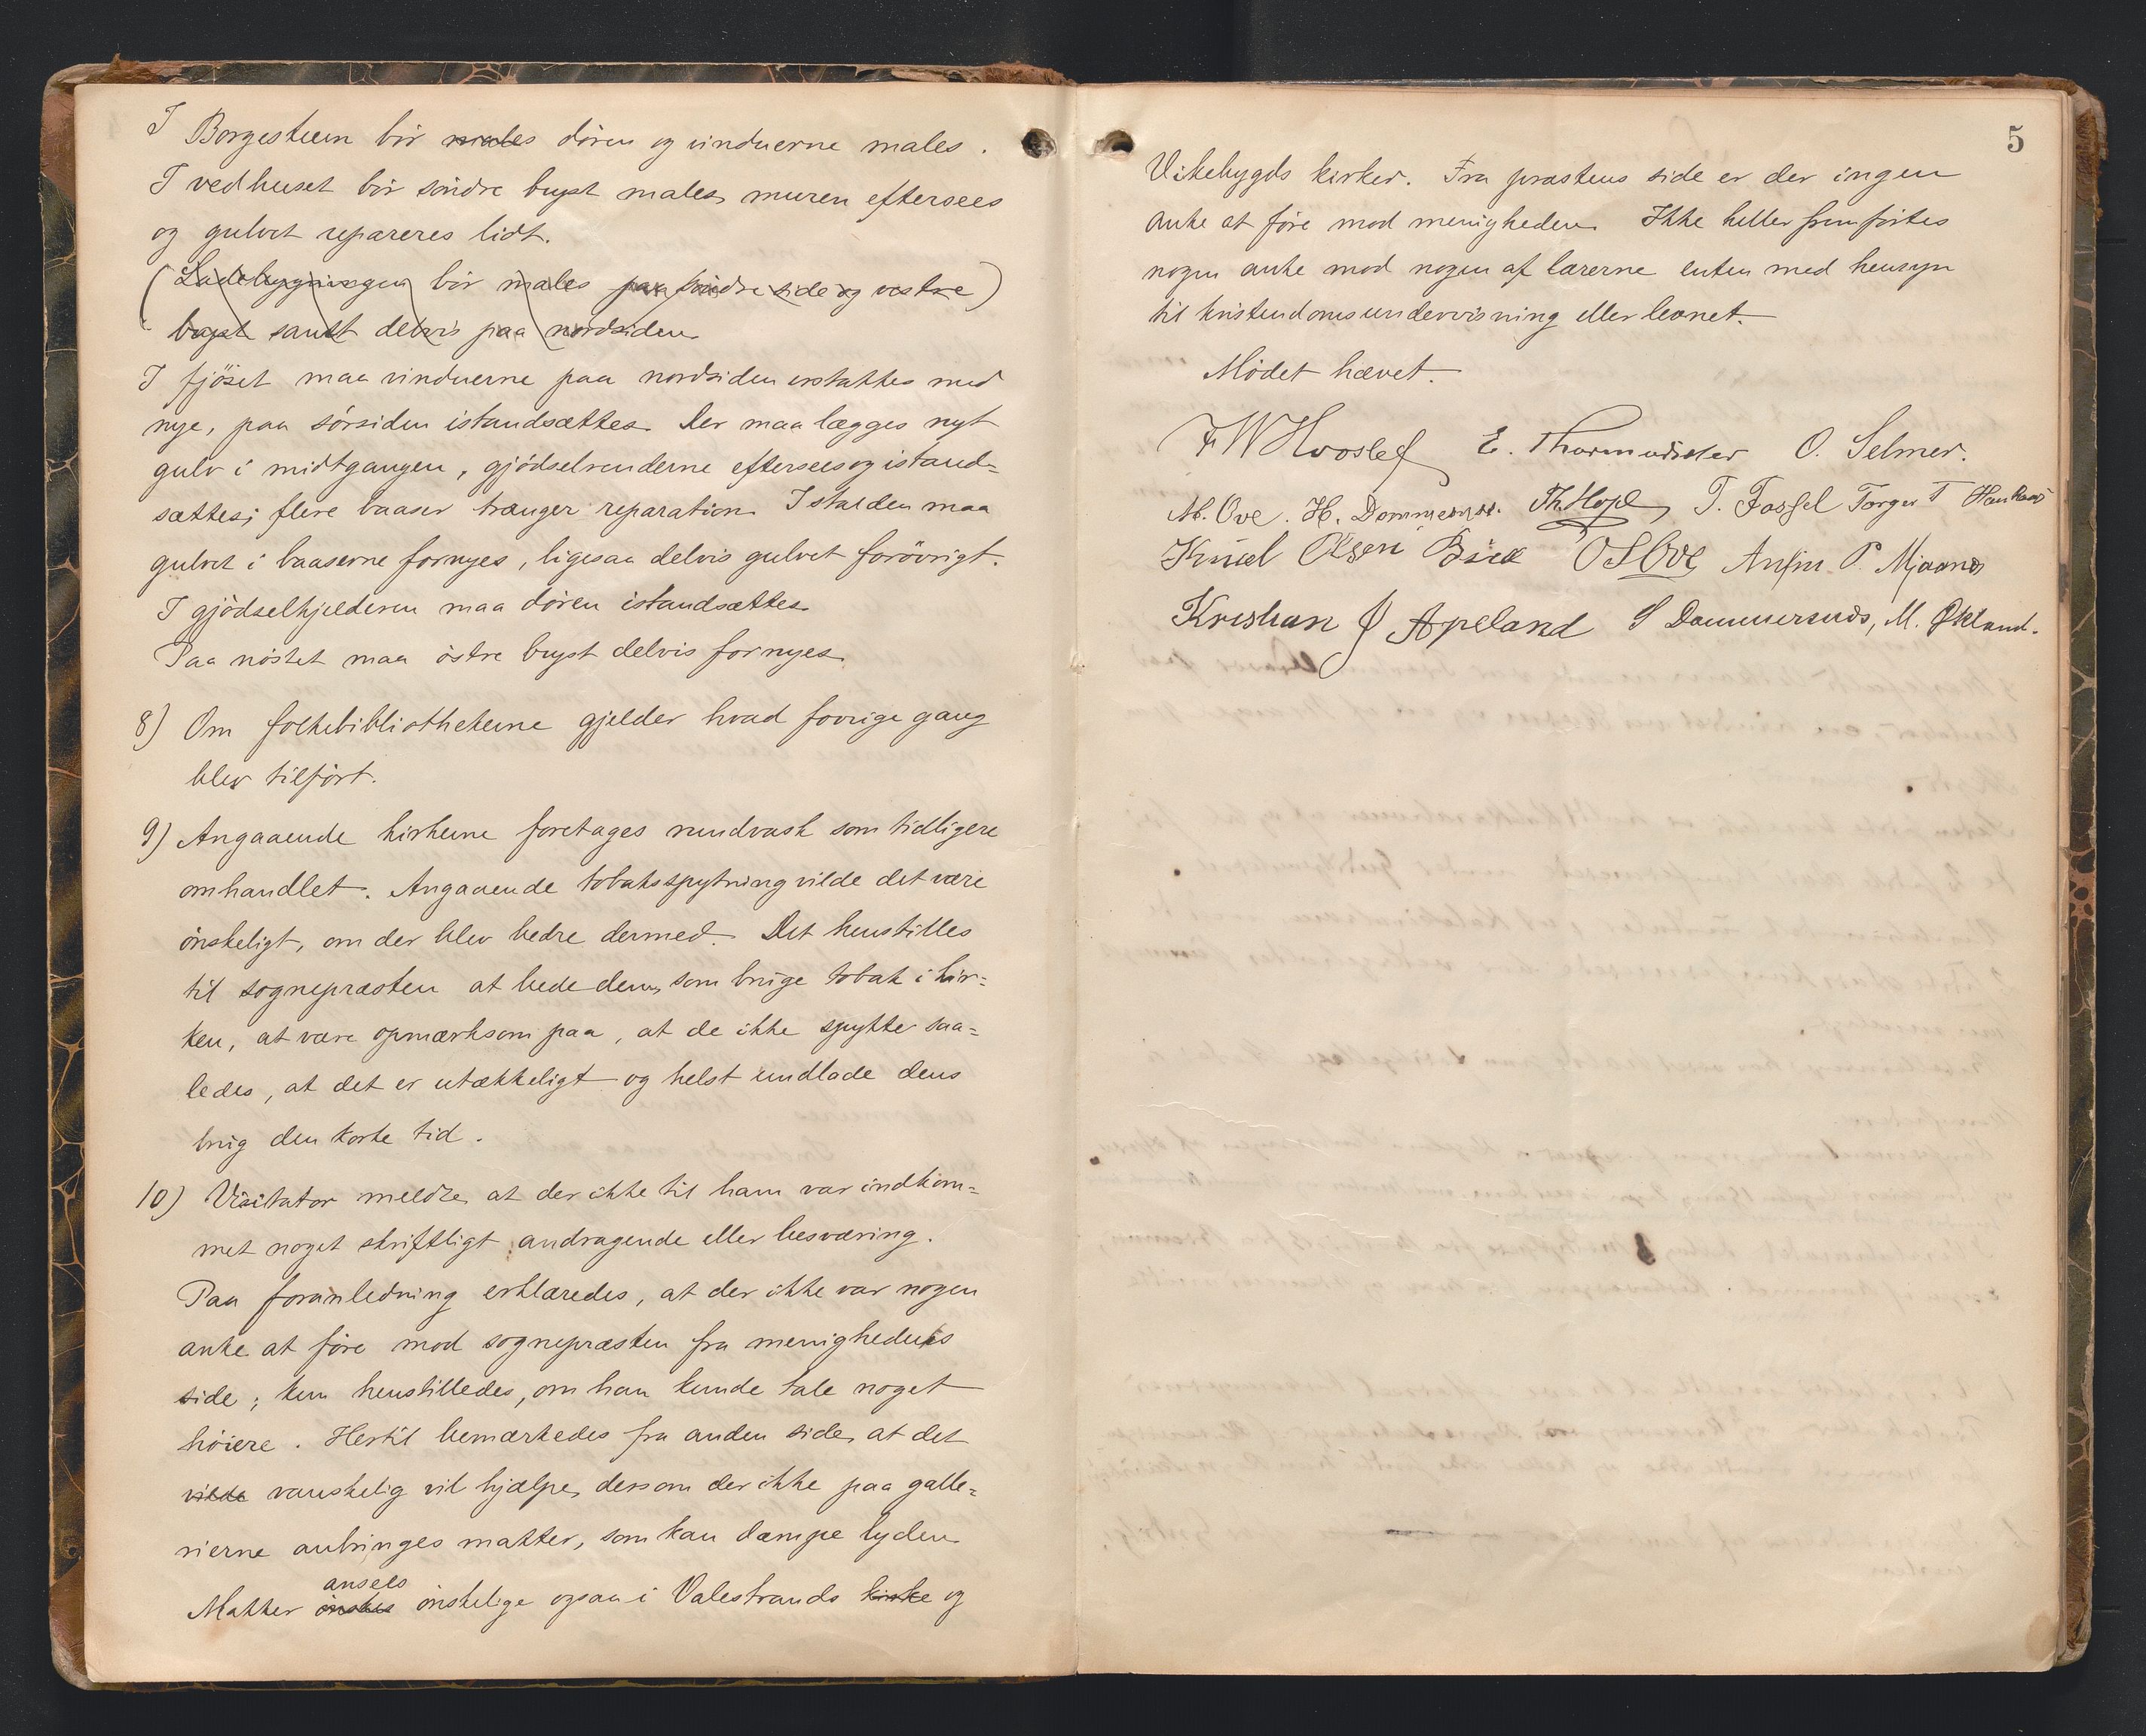 I Borgestuen bör males dören og vinduerne males.
I vedhuset bör söndre bryst males, muren eftersees
og gulvet repareres lidt.
(Ladebygningen bör males paa söndre side og vestre)
bryst samt delvis paa nordsiden
I fjöset maa vinduerne paa nordsiden erstattes med
nye, paa sörsiden istandsættes. Der maa lægges nyt
gulv i midtgangen, gjödselrenderne eftersees og istand=
sættes; flere baaser trænger reparation. I stalden maa
gulvet i baaserne fornyes, ligesaa delvis gulvet forövrigt.
I gjödselkjelderen maa dören istandsættes.
Paa nöstet maa östre bryst delvis fornyes.
8) Om folkebibliothekerne gjelder hvad forrige gang
blev tilfört.
9) Angaaende kirkerne foretages rundvask som tidligere
omhandlet. Angaaende tobaksspytning vilde det være
önskeligt, om der blev bedre dermed. Det henstilles
til sognepræsten at bede dem, som bruge tobak i kir=
ken, at være opmærksom paa, at de ikke spytte saa=
ledes, at det er utækkeligt og helst undlade dens
brug den korte tid.
10) Visitator meldte, at der ikke til ham var indkom=
met noget skriftligt andragende eller besværing.
Paa foranledning erklæredes, at der ikke var nogen
anke at före mod sognepræsten fra menighedens
side; kun henstilledes, om han kunde tale noget
höiere. Hertil bemærkedes fra anden side, at det
vilde vanskelig vil hjælpe, dersom der ikke paa galle=
rierne anbringes matter, som kan dæmpe lyden.
ansees
Matter önskes önskelige ogsaa i Valestrands kirke og
5
Vikebygds kirker. Fra præstens side er der ingen
anke at före mod menigheden. Ikke heller fremförtes
nogen anke mod nogen af lærerne enten med hensyn
til kristendomsundervisning eller levnet.
Mödet hævet.
F W Hvoslef E. Thormodsæter O. Selmer.
M. Ove. H. Dommersnes. Th. Hope, T. Fosfel Torger T
Knud Olsen O S Ove Anfin P. Mjaanes
Kristian J Apeland S Dommersnæs, M. Økland.